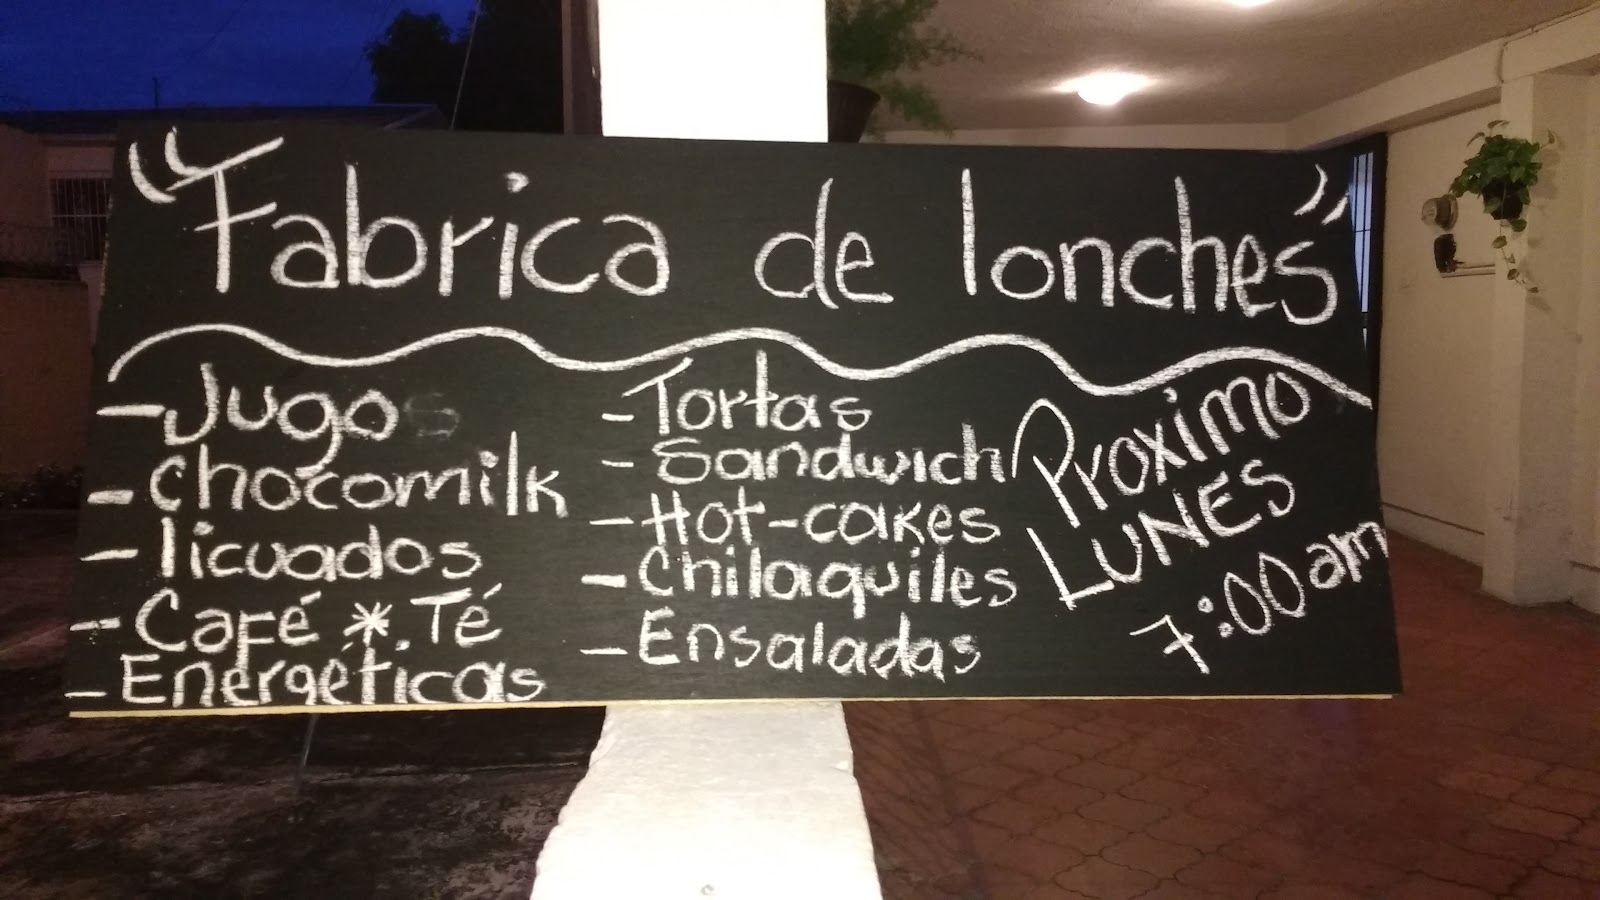 "Fabrica de lonches"
- Jugos
- chocomilk
- licuados
- Café *. Té
- Energéticas
- Tortas
- Sandwich
- Hot-cakes
- Chilaquiles
- Ensaladas
Proximo
LUNES
7:00 am